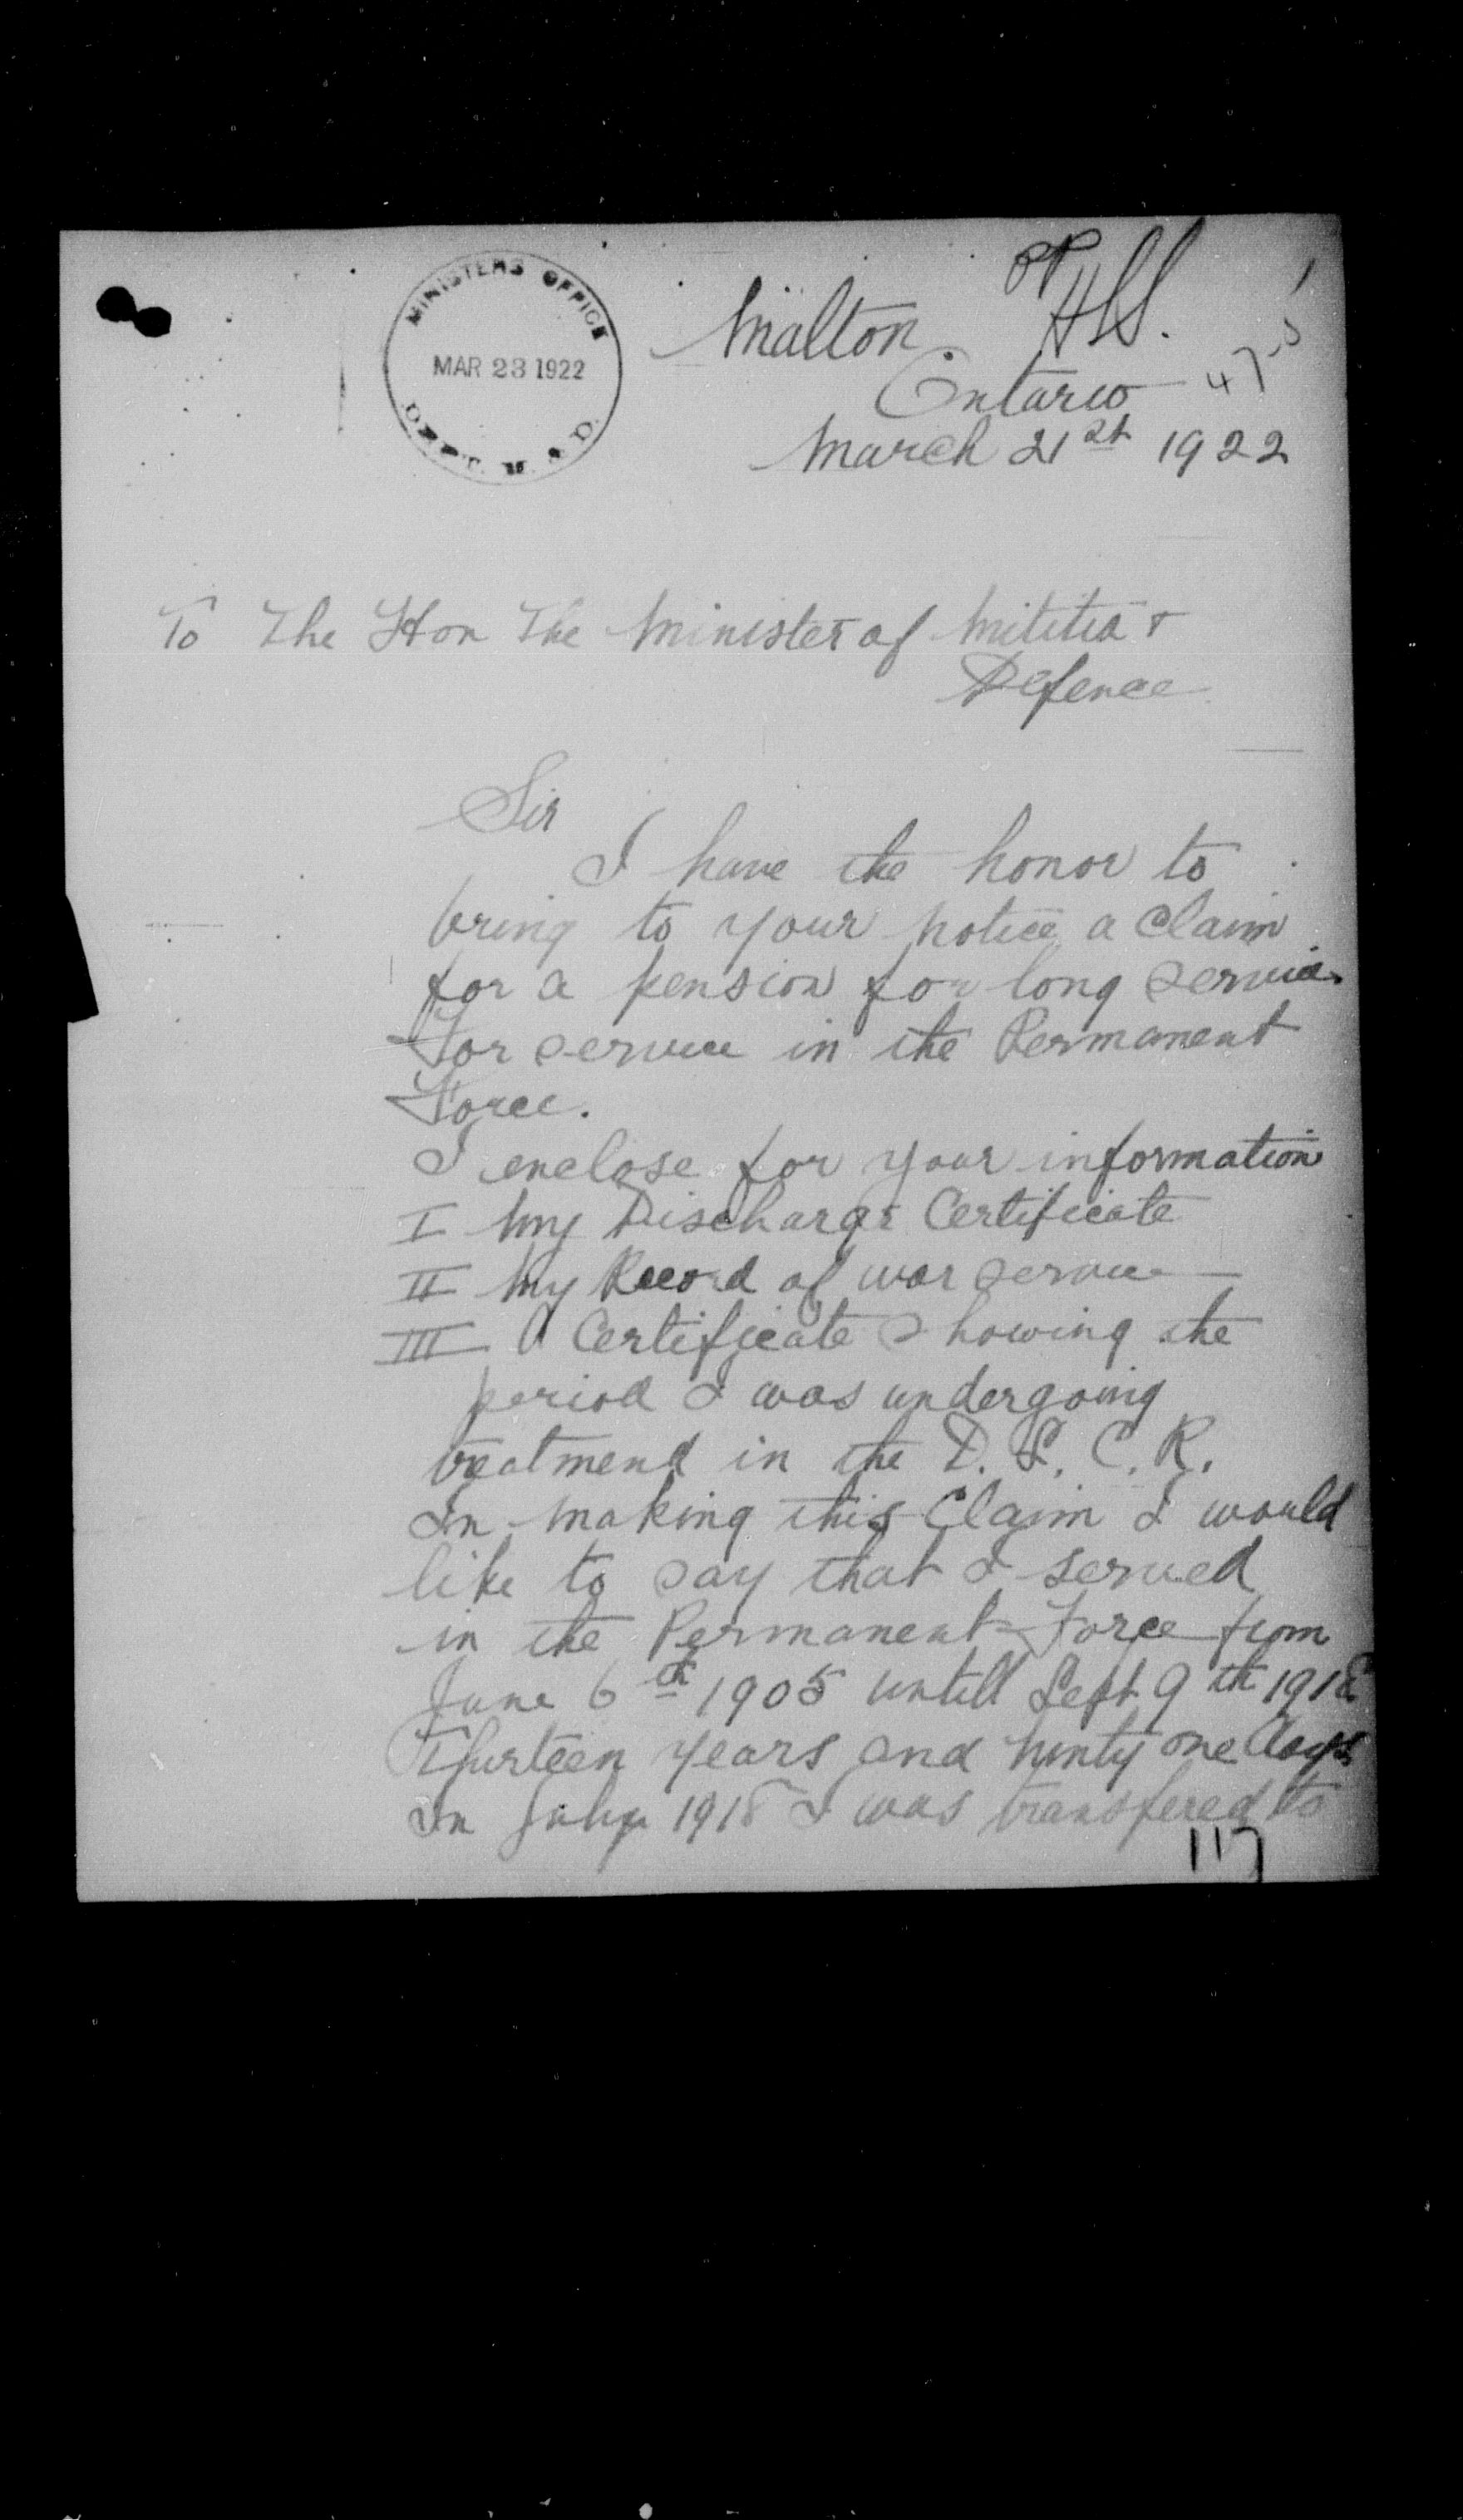 MINISTERS OFFICE
MAR 23 1922
DEPT. M & D
Malton
Ontario
47-5
March 21st 1922
To The Hon The Minister of Mititia &
Defence
Sir
I have the honor to
bring to your notice a claim
for a pension for long service
For service in the Permanent
Force.
I enclose for your information
I My Discharge Certificate
II My Record of war service
III A Certificate Showing the
period I was undergoing
treatmend in the D. S. C. R.
In making this Claim I would
like to say that I served
in the Permanent Force from
June 6th 1905 untill Sept 9th 1918
Thurteen years and ninty one days
In July 1918 I was transfered to
117